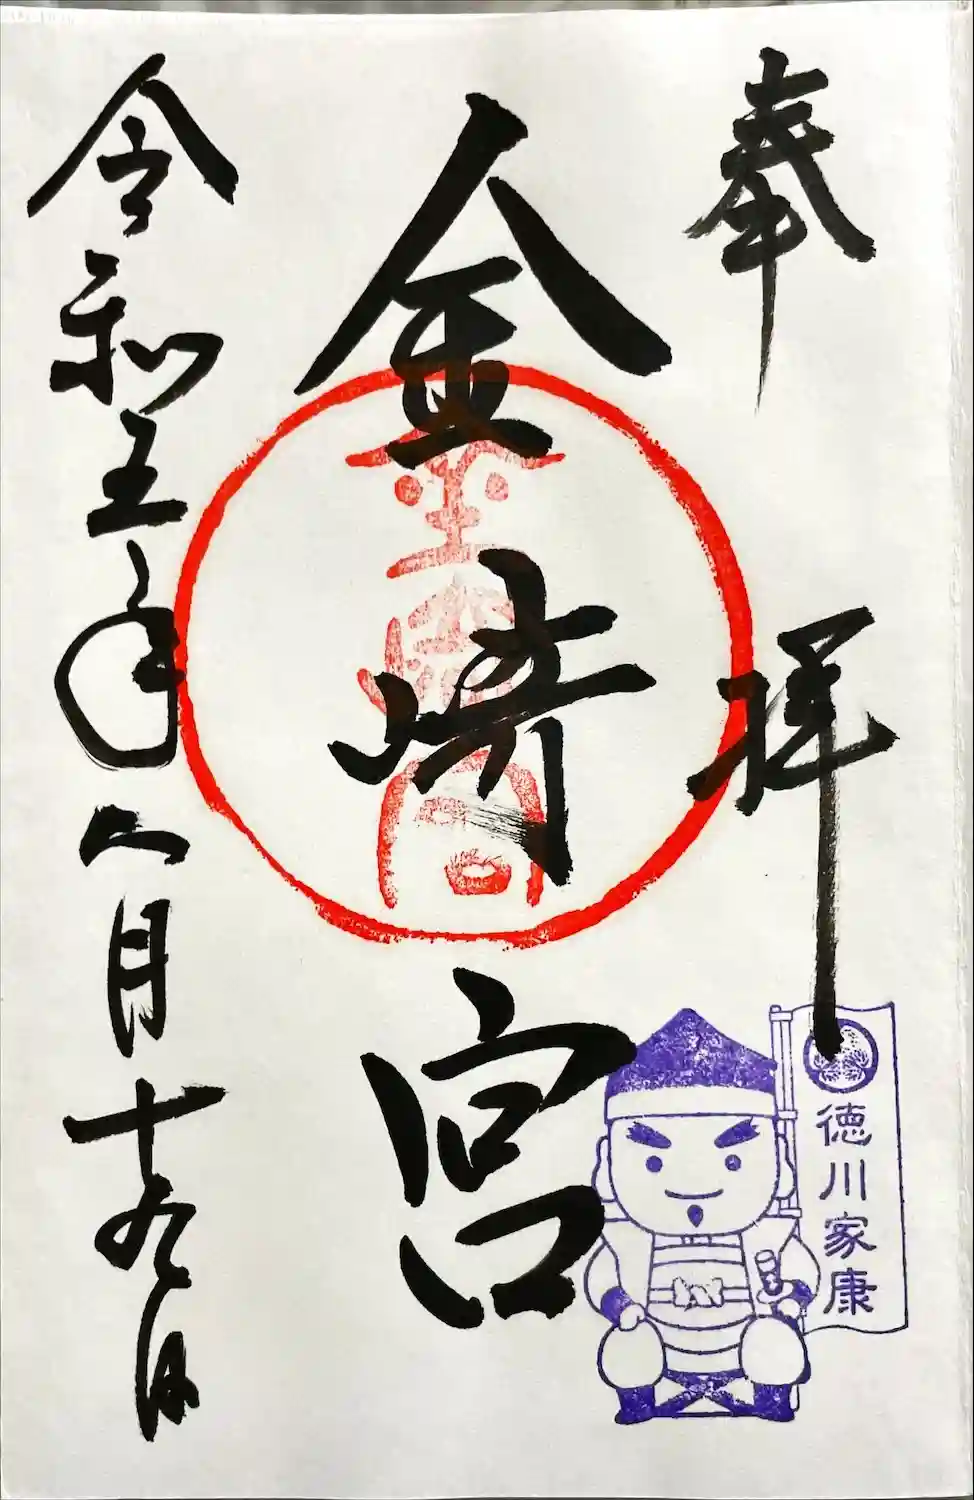 奉拝
徳川家康
金崎宮
金崎宮
令和五年八月十九日